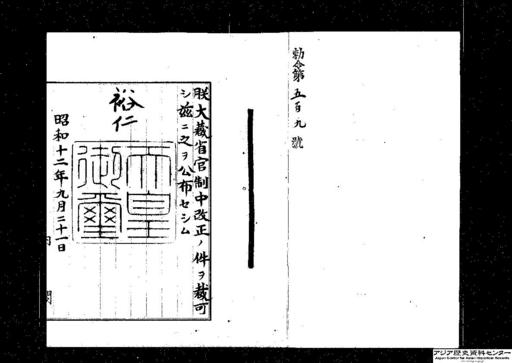 勅令第五百九號
朕大藏省官制中改正ノ件ヲ裁可
シ茲ニ之ヲ公布セシム
裕仁
天皇御璽
昭和十二年九月二十一日
内閣
アジア歴史資料センター
Japan Center for Asian Historical Records